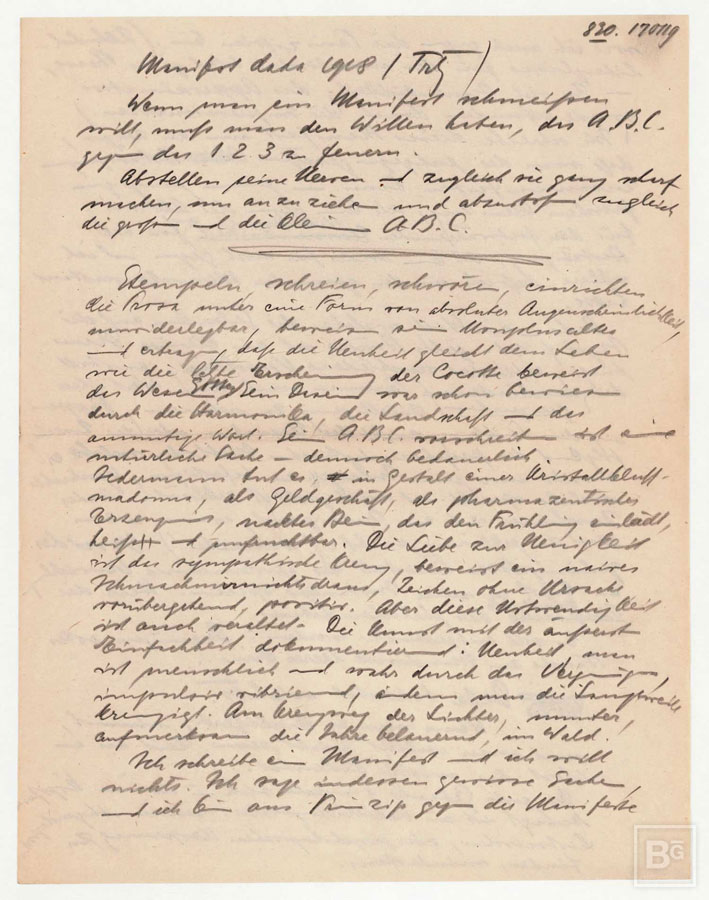 830. 170119
Manifest dada 1918 / Tztz /
Wenn man ein Manifest schmeissen
will, muss man den Willen haben, das A. B. C.
gegen das 1 2 3 zu feuern.
Abstellen seine Nerven und zugleich sie ganz scharf
machen, um anzuziehen und abzustossen zugleich
die grossen und die kleinen A. B. C.
Stempeln, schreien, schwören, einrichten
die Prosa unter eine Form von absoluter Augenscheinlichkeit,
unwiderlegbar, beweisen sein
und ertragen, daß die Neuheit gleicht dem Leben
wie die letzte Erscheinung der Cocotte beweist
das Wesen Gottes. Sein Dasein war schon bewiesen
durch die Harmonika, die Landschaft und das
anmutige Wort. Sein A.B.C. vorschreiben ist eine
natürliche Sache – dennoch bedauerlich.
Jedermann tut es, in Gestalt einer Kristallbluff-
madonna, als Geldgeschäft, als pharmazeutisches
Erzeugnis, nacktes Bein, das den Frühling einlädt,
heiss und unfruchtbar. Die Liebe zur Neuigkeit
ist das sympathische Kreuz, beweist ein naives
Schmachmirnichtsdraus, Zeichen ohne Ursache
vorübergehend, positiv. Aber diese Notwendigkeit
ist auch veraltet. Die Kunst mit der äussersten
Einfachheit dokumentierend: Neuheit, man
ist menschlich und wahr durch das Vergnügen,
impulsiv vibrierend, indem man die Langeweile
kreuzigt. Am Kreuzweg der Lichter, munter,
aufmerksam die Jahre belauernd, im Wald.
Ich schreibe ein Manifest und ich will
nichts. Ich sage indessen gewisse Sachen
und ich bin aus Prinzip gegen die Manifeste
BG